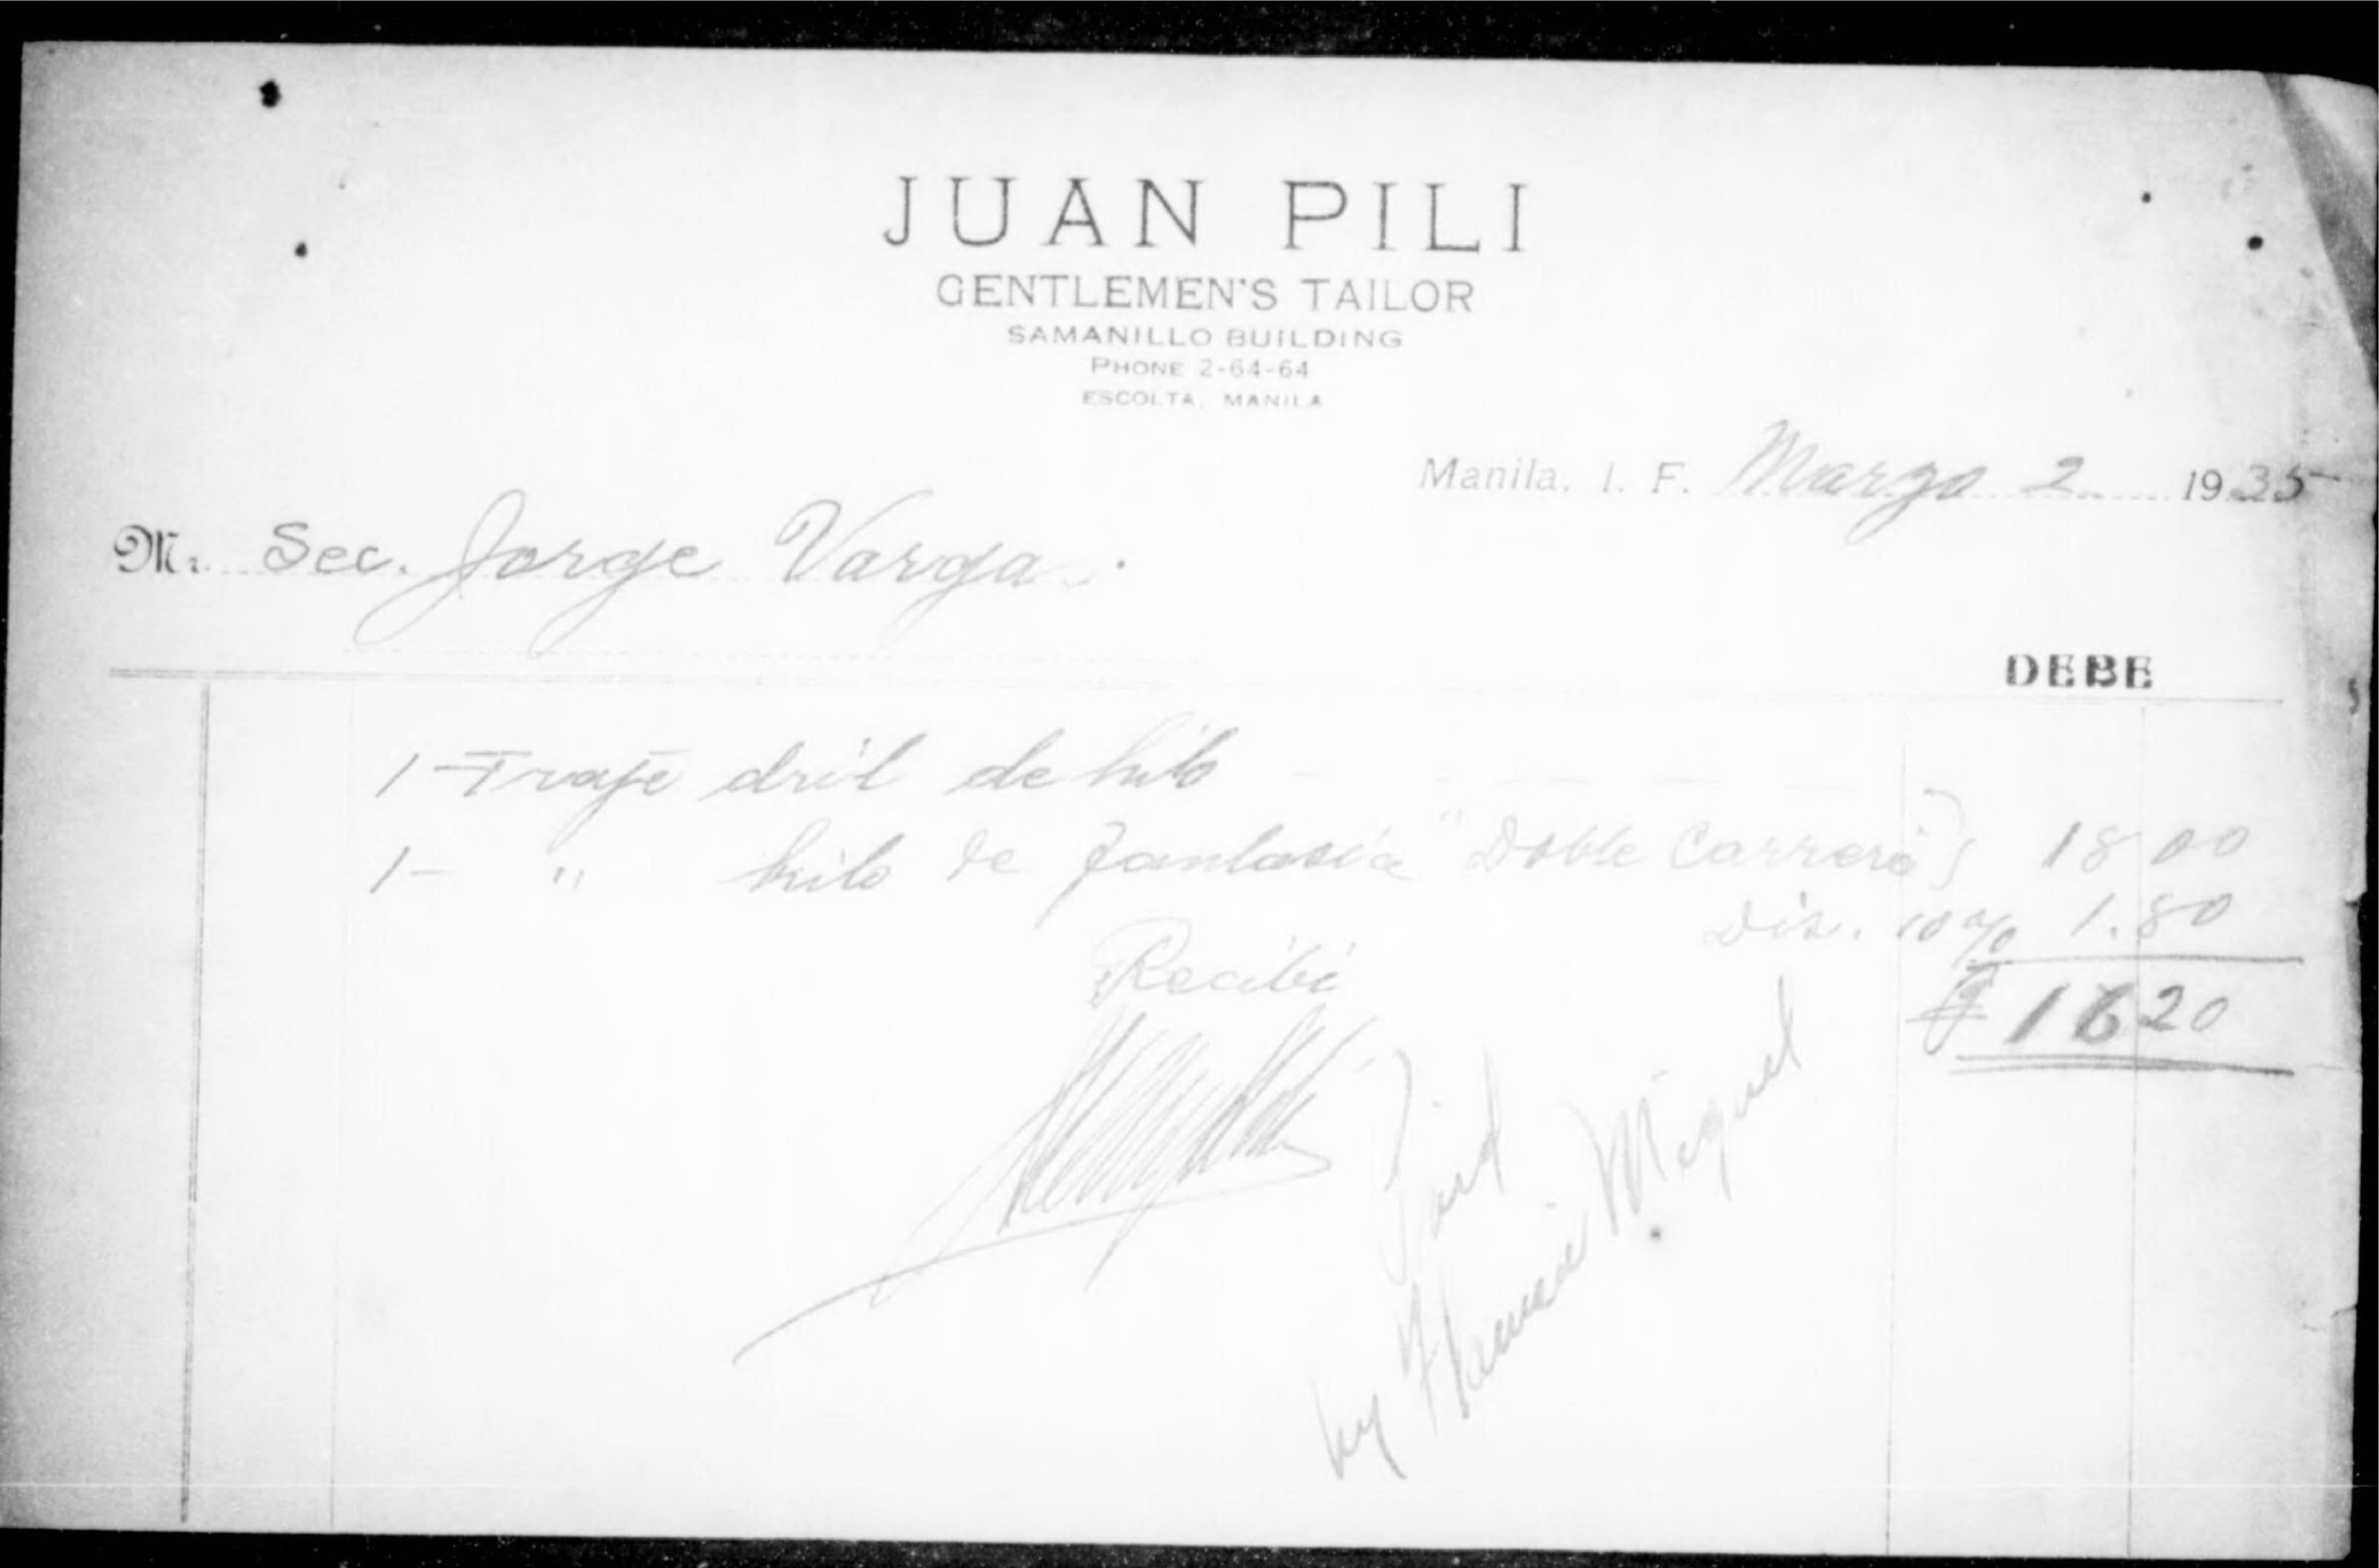 JUAN PILI
GENTLEMEN'S TAILOR
SAMANILLO BUILDING
PHONE 2-64-64
ESCOLTA, MANILA
Manila, I. F. Marzo 2 1935
M. Sec. Jorge Vargas.
DEBE
1-Traje dril de hilo
1- " hilo de fantasia "Doble Carrera" 18 00
Dis. 10% 1.80
₱ 16 20
Recibi
Paid
by Miguel